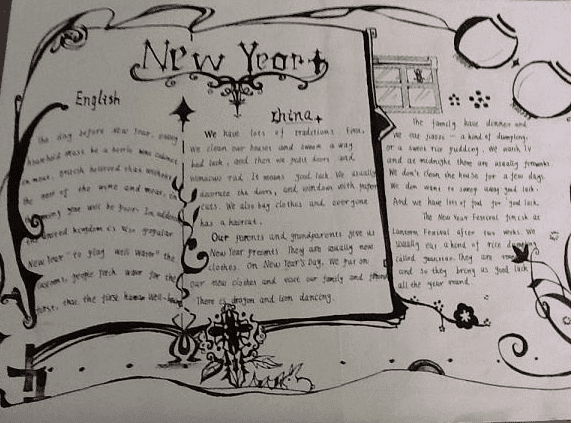 New Year
English
The day before New Year, every
household must be a bottle wine cabinet
in meat. British believed that without
the rest of the wine and meat, in
coming year will be poor. In addition
the united kingdom is also popular
New Year "to play well water" the
customs, people fetch water for the
first, that the first human well-
China
We have lots of traditions. First,
We clean our houses and sweep a way
bad luck, and then we paint doors and
windows red. It means good luck. We usually
decorate the doors, and windows with paper
cuts. We also buy clothes and everyone
has a haircut.
Our parents and grandparents give us
New Year presents. They are usually new
clothes. On New Year's Day, We put on
our new clothes and visit our family and friend
There is dragon and lion dancing.
The family have dinner and
We eat jiaozi — a kind of dumpling,
or a sweet rice pudding. We watch TV
and at midnight there are usually fireworks
We don't clean the house for a few days.
We don want to sweep away good luck.
And we have lots of food for good luck.
The New Year Festival finish at
Lantern Festival after two weeks. We
usually eat a kind of rice dumplings
called yuanxiao. They are
and so they bring us good luck
all the year round.